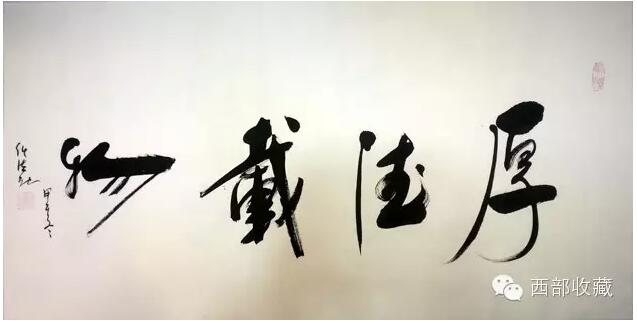 厚德載物
甲午冬
西部收藏